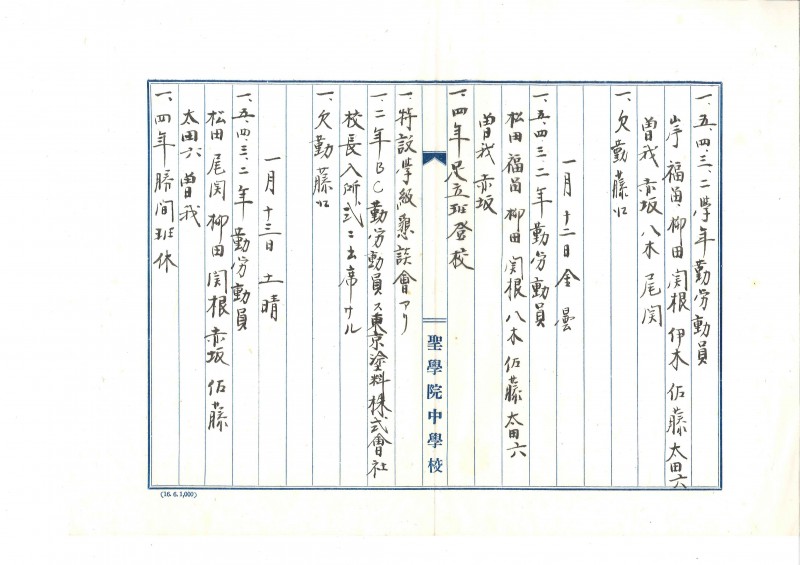 一、五、四、三、二学年勤労動員
岸 福留 柳田 関根 伊木 佐藤 太田六
曽我 赤坂 八木 尾関
一、欠勤藤江
一月十二日金 曇
一、五、四、三、二年勤労動員
松田 福留 柳田 関根 八木 佐藤 太田六
曽我 赤坂
一、四年足立班登校
聖學院中學校
一、特設学級懇談會アリ
一、二年BC勤労動員ス東京塗料株式會社
校長入所式ニ出席サル
一、欠勤藤江
一月十三日 土 晴
一、五、四、三、二年勤労動員
松田 尾関 柳田 関根 赤坂 佐藤
太田六 曽我
一、四年 間班休
(16. 6. 1,000)